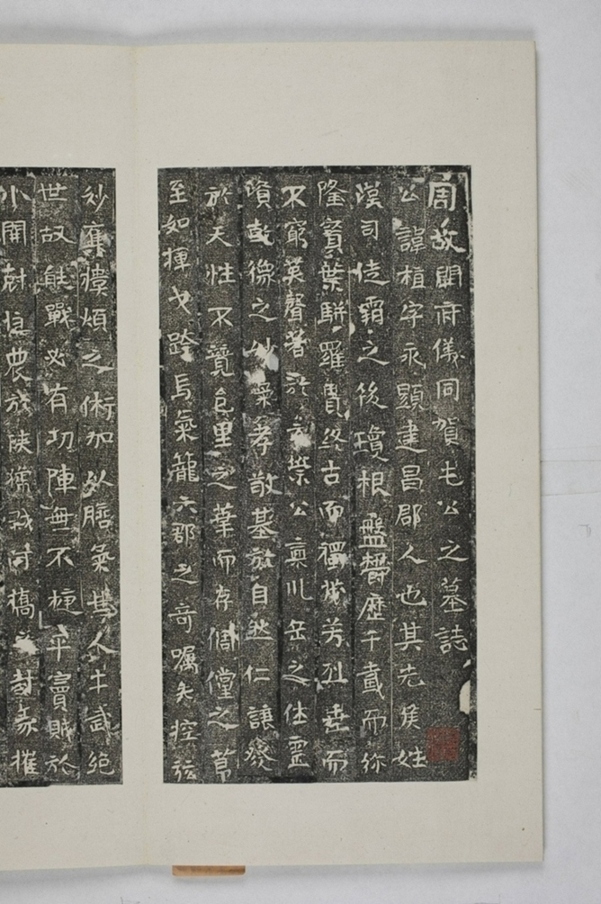 周故開府儀同賀屯公之墓誌
公諱植字永顯建昌郡人也其先侯姓
漢司徒霸之後瓊根盤鬱歷千載而弥
隆寶葉駢羅貫終古而獨茂芳烈垂而
不窮英聲著於公稟川岳之佳靈
資之妙氣孝敬基於自然仁讓發
於天性不覽之華而存倜儻之節
至如揮戈跨馬氣籠六郡之奇囑矢控弦
妙之術加以膽氣人才武絕
世故能戰必有功陣無不摧平竇賊於
小關討恒農於陝